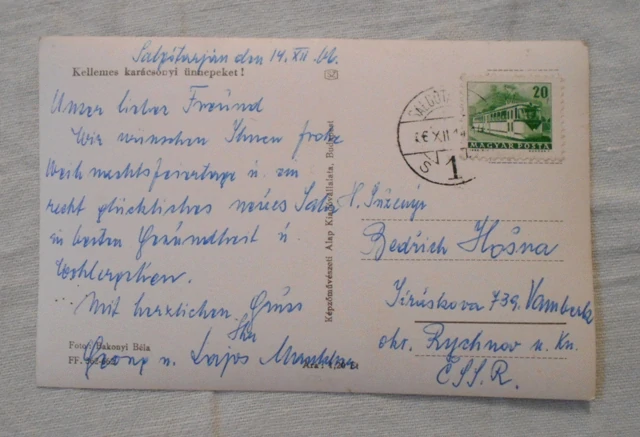 Salgótarján den 14. XII. 66.
Kellemes karácsonyi ünnepeket!
Unser lieber Freund
Wir wünschen Ihnen frohe
Weihnachtsfeiertage u. ein
recht glückliches neues Jahr
in besten Gesundheit u
Wohlergehen.
Mit herzlichen Gruss
Ihr
u. Lajos
Foto: Bakonyi Béla
FF.
Képzőművészeti Alap Kiadóvállalata, Budapest
20
MAGYAR POSTA
1
Bedřich Hošna
Jiráskova 739. Vamberk
okr. Rychnov n. Kn.
ČSSR.